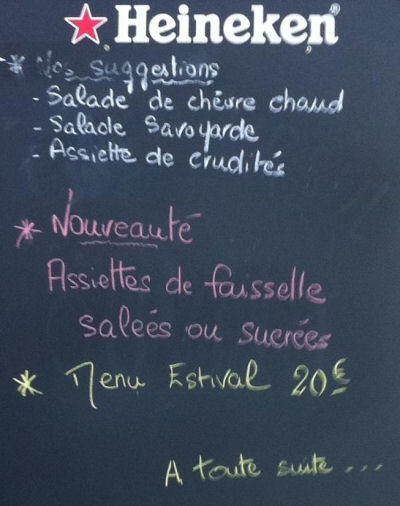 Heineken®
* Nos suggestions
- Salade de chèvre chaud
- Salade Savoyarde
- Assiette de crudités
* Nouveauté
Assiettes de faisselle
saleés ou sucrées
* Menu Estival 20€
A toute suite...